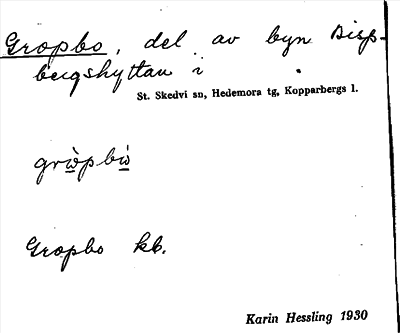 Gropbo, del av byn Bisp-
bergshyttan i
St. Skedvi sn, Hedemora tg, Kopparbergs l.
grὼpbὼ
Gropbo kb.
Karin Hessling 1930